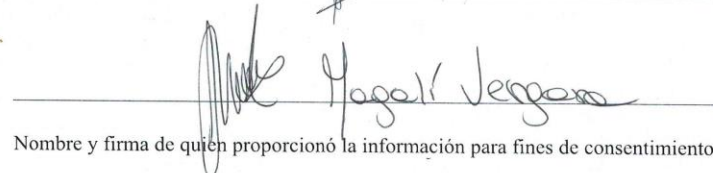 Magalí Vergara
Nombre y firma de quien proporcionó la información para fines de consentimiento